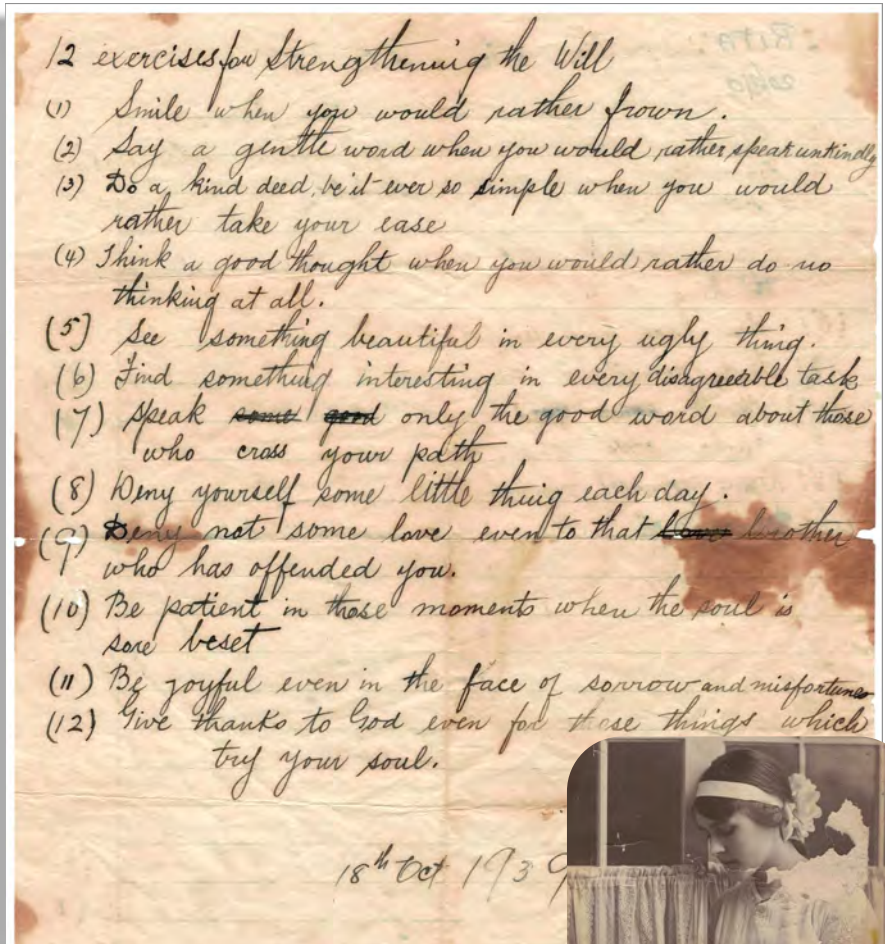 12 exercises for Strengthening the Will
(1) Smile when you would rather frown.
(2) Say a gentle word when you would rather speak unkindly
(3) Do a kind deed, be it ever so simple when you would
rather take your ease
(4) Think a good thought when you would rather do no
thinking at all.
(5) See something beautiful in every ugly thing.
(6) Find something interesting in every disagreeable task
(7) Speak some good only the good word about those
who cross your path
(8) Deny yourself some little thing each day.
(9) Deny not some love even to that brother
who has offended you.
(10) Be patient in those moments when the soul is
sore beset
(11) Be joyful even in the face of sorrow and misfortunes
(12) Give thanks to God even for these things which
try your soul.
18th Oct 1939